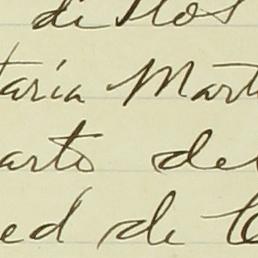 di Hos
taria Mart
arto de
ed de C